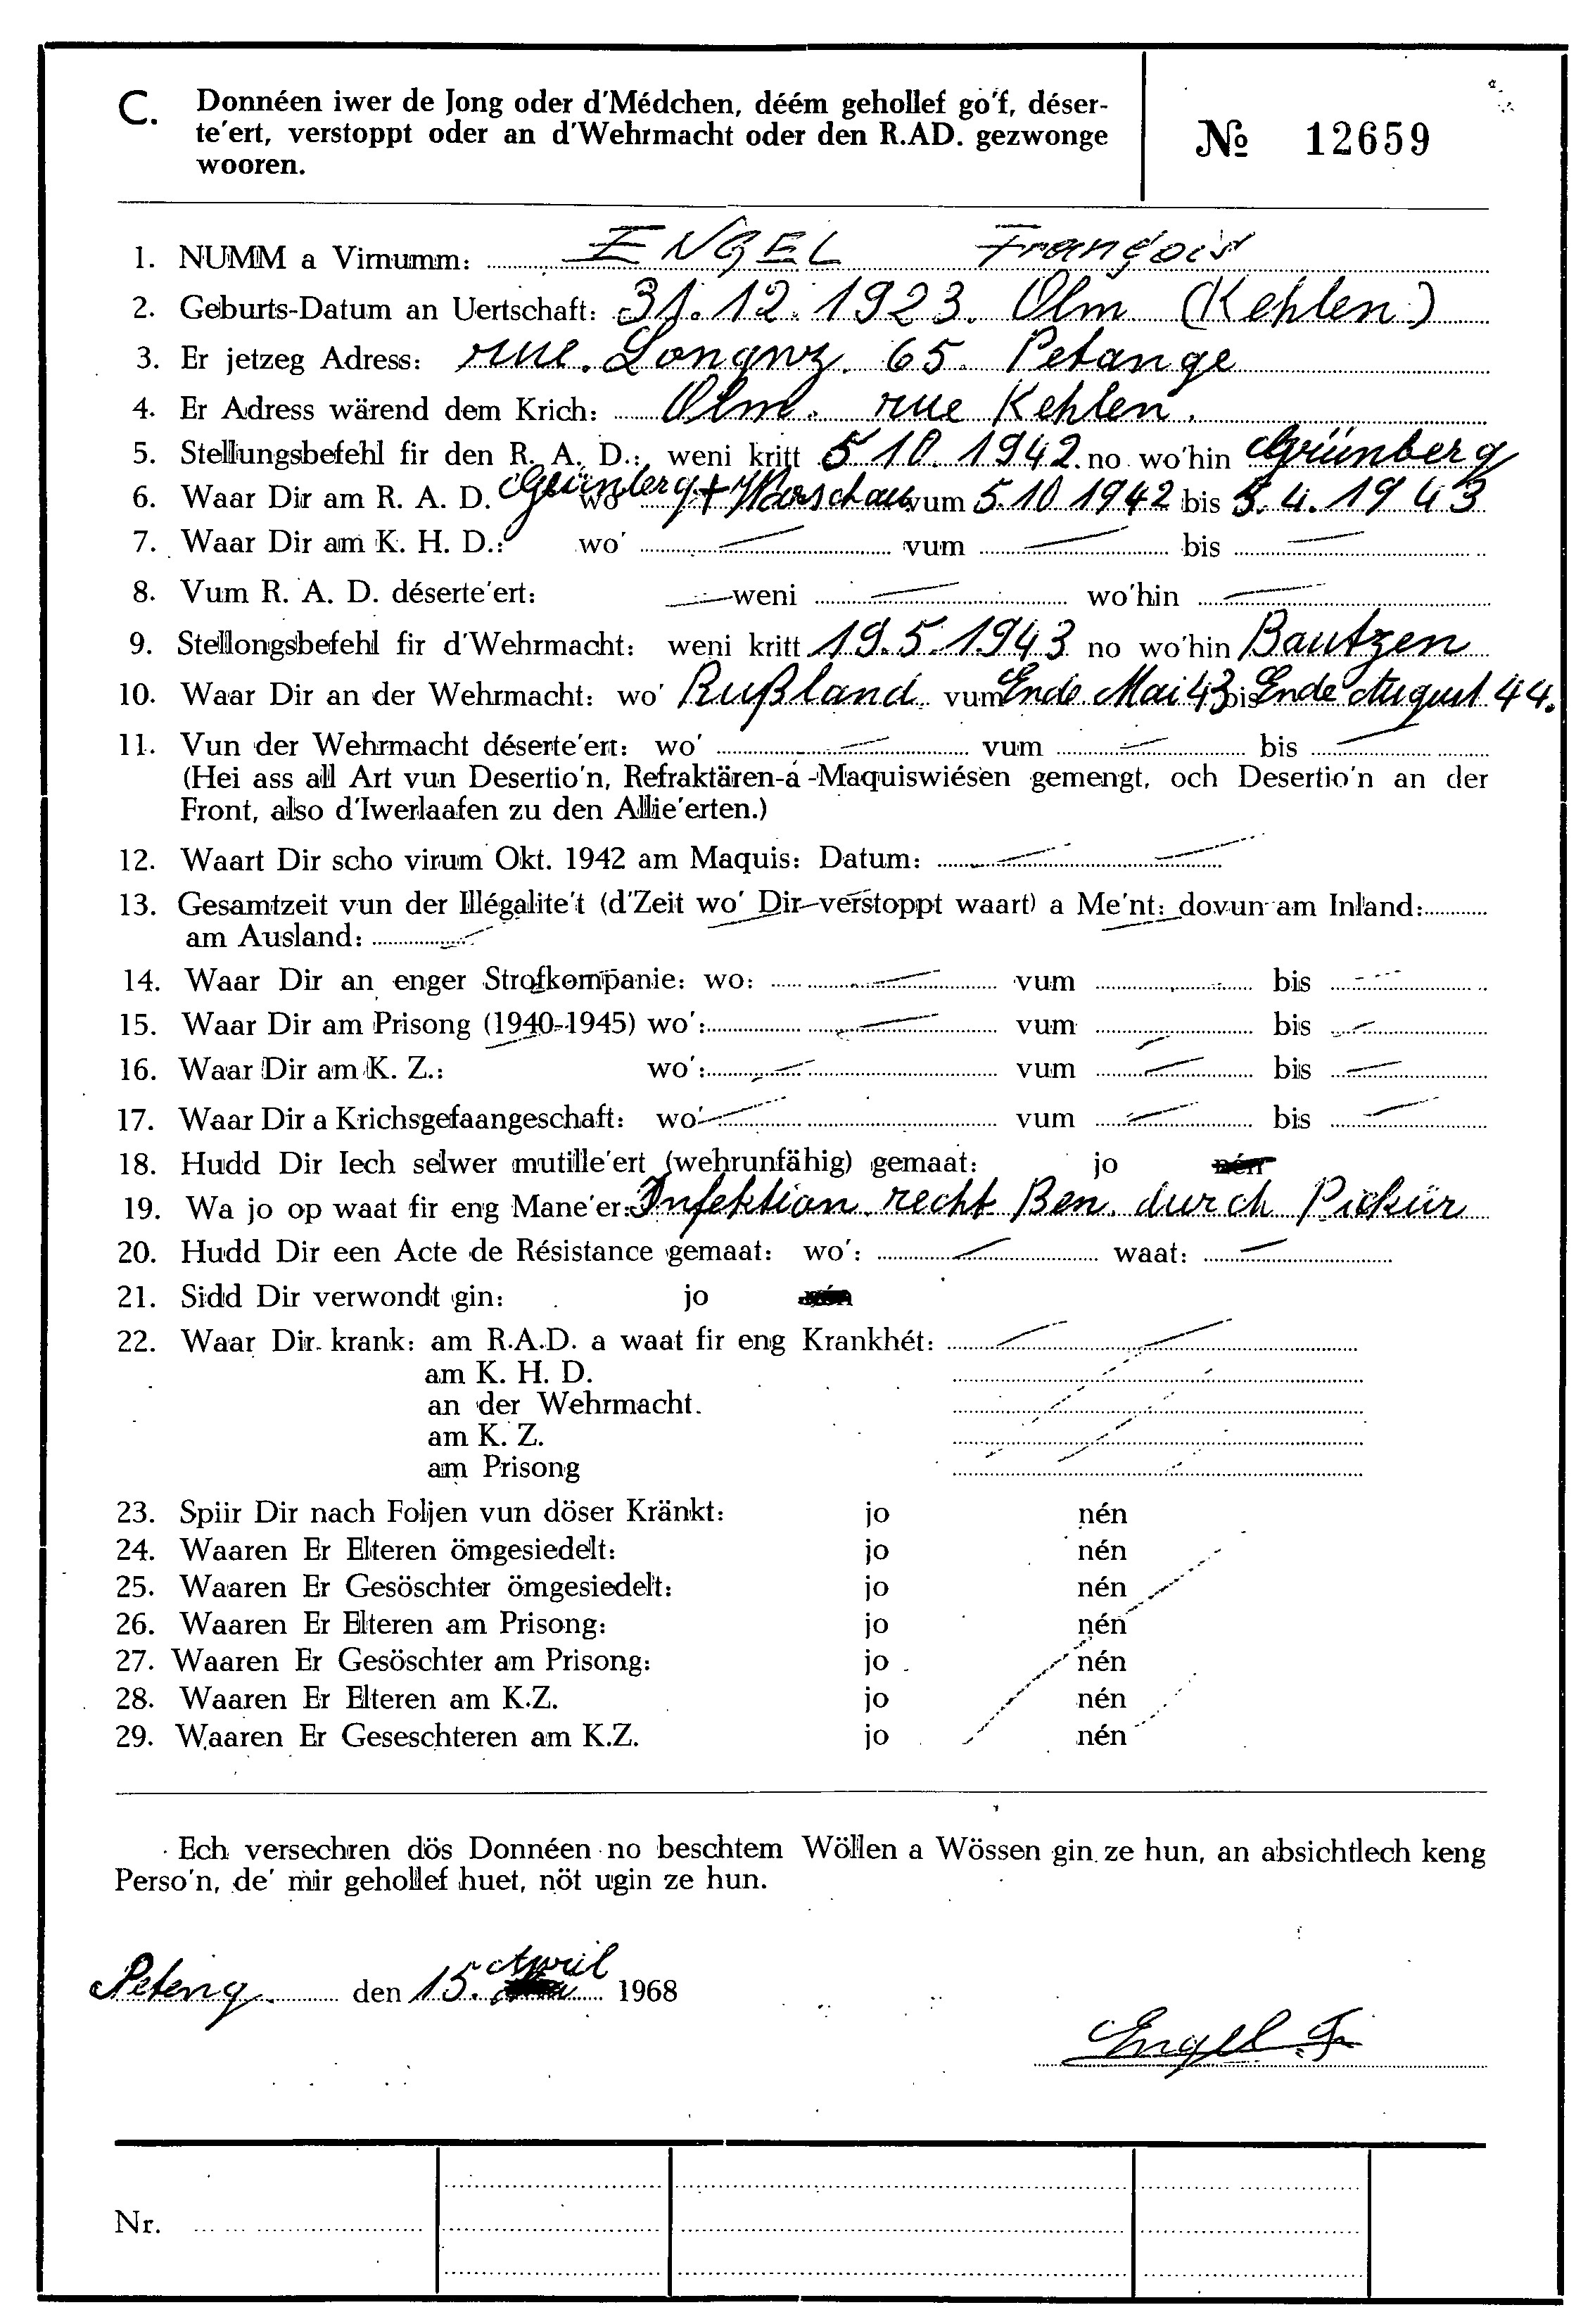 C. Donnéen iwer de Jong oder d'Médchen, déém gehollef go'f, déser-
te'ert, verstoppt oder an d'Wehrmacht oder den R.AD. gezwonge
wooren.
№ 12659
1. NUMM a Virnumm: ENGEL François
2. Geburts-Datum an Uertschaft: 31.12.1923. Olm (Kehlen)
3. Er jetzeg Adress: rue. Longwy. 65. Petange
4. Er Adress wärend dem Krich: Olm. rue Kehlen.
5. Stellungsbefehl fir den R. A. D.: weni kritt 5 10. 1942. no wo'hin Grünberg
6. Waar Dir am R. A. D. wo' Grünberg + Warschau vum 5.10 1942 bis 3.4.1943
7. Waar Dir am K. H. D.: wo' — vum — bis —
8. Vum R. A. D. déserte'ert: — weni — wo'hin —
9. Stellongsbefehl fir d'Wehrmacht: weni kritt 19.5.1943 no wo'hin Bautzen
10. Waar Dir an der Wehrmacht: wo' Rußland vum Ende Mai 43 bis Ende August 44.
11. Vun der Wehrmacht déserte'ert: wo' — vum — bis —
(Hei ass all Art vun Desertio'n, Refraktären-a -Maquiswiésen gemengt, och Desertio'n an der
Front, also d'Iwerlaafen zu den Allie'erten.)
12. Waart Dir scho virum Okt. 1942 am Maquis: Datum: — —
13. Gesamtzeit vun der Illégalite't (d'Zeit wo' Dir verstoppt waart) a Me'nt: dovun am Inland:
am Ausland: —
14. Waar Dir an enger Strofkompanie: wo: — vum — bis —
15. Waar Dir am Prisong (1940-1945) wo': — vum — bis —
16. Waar Dir am K. Z.: wo': — vum — bis —
17. Waar Dir a Krichsgefaangeschaft: wo' — vum — bis —
18. Hudd Dir Iech selwer mutille'ert (wehrunfähig) gemaat: jo nén
19. Wa jo op waat fir eng Mane'er: Infektion recht Ben. durch Pickür
20. Hudd Dir een Acte de Résistance gemaat: wo': — waat: —
21. Sidd Dir verwondt gin: jo nén
22. Waar Dir krank: am R.A.D. a waat fir eng Krankhét: — —
am K. H. D.
an der Wehrmacht.
am K. Z.
am Prisong
23. Spiir Dir nach Foljen vun döser Kränkt: jo nén
24. Waaren Er Elteren ömgesiedelt: jo nén
25. Waaren Er Gesöschter ömgesiedelt: jo nén
26. Waaren Er Elteren am Prisong: jo nén
27. Waaren Er Gesöschter am Prisong: jo nén
28. Waaren Er Elteren am K.Z. jo nén
29. Waaren Er Geseschteren am K.Z. jo nén
Ech versechren dös Donnéen no beschtem Wöllen a Wössen gin ze hun, an absichtlech keng
Perso'n, de' mir gehollef huet, nöt ugin ze hun.
Peteng den 15. April 1968
Engel F
Nr.